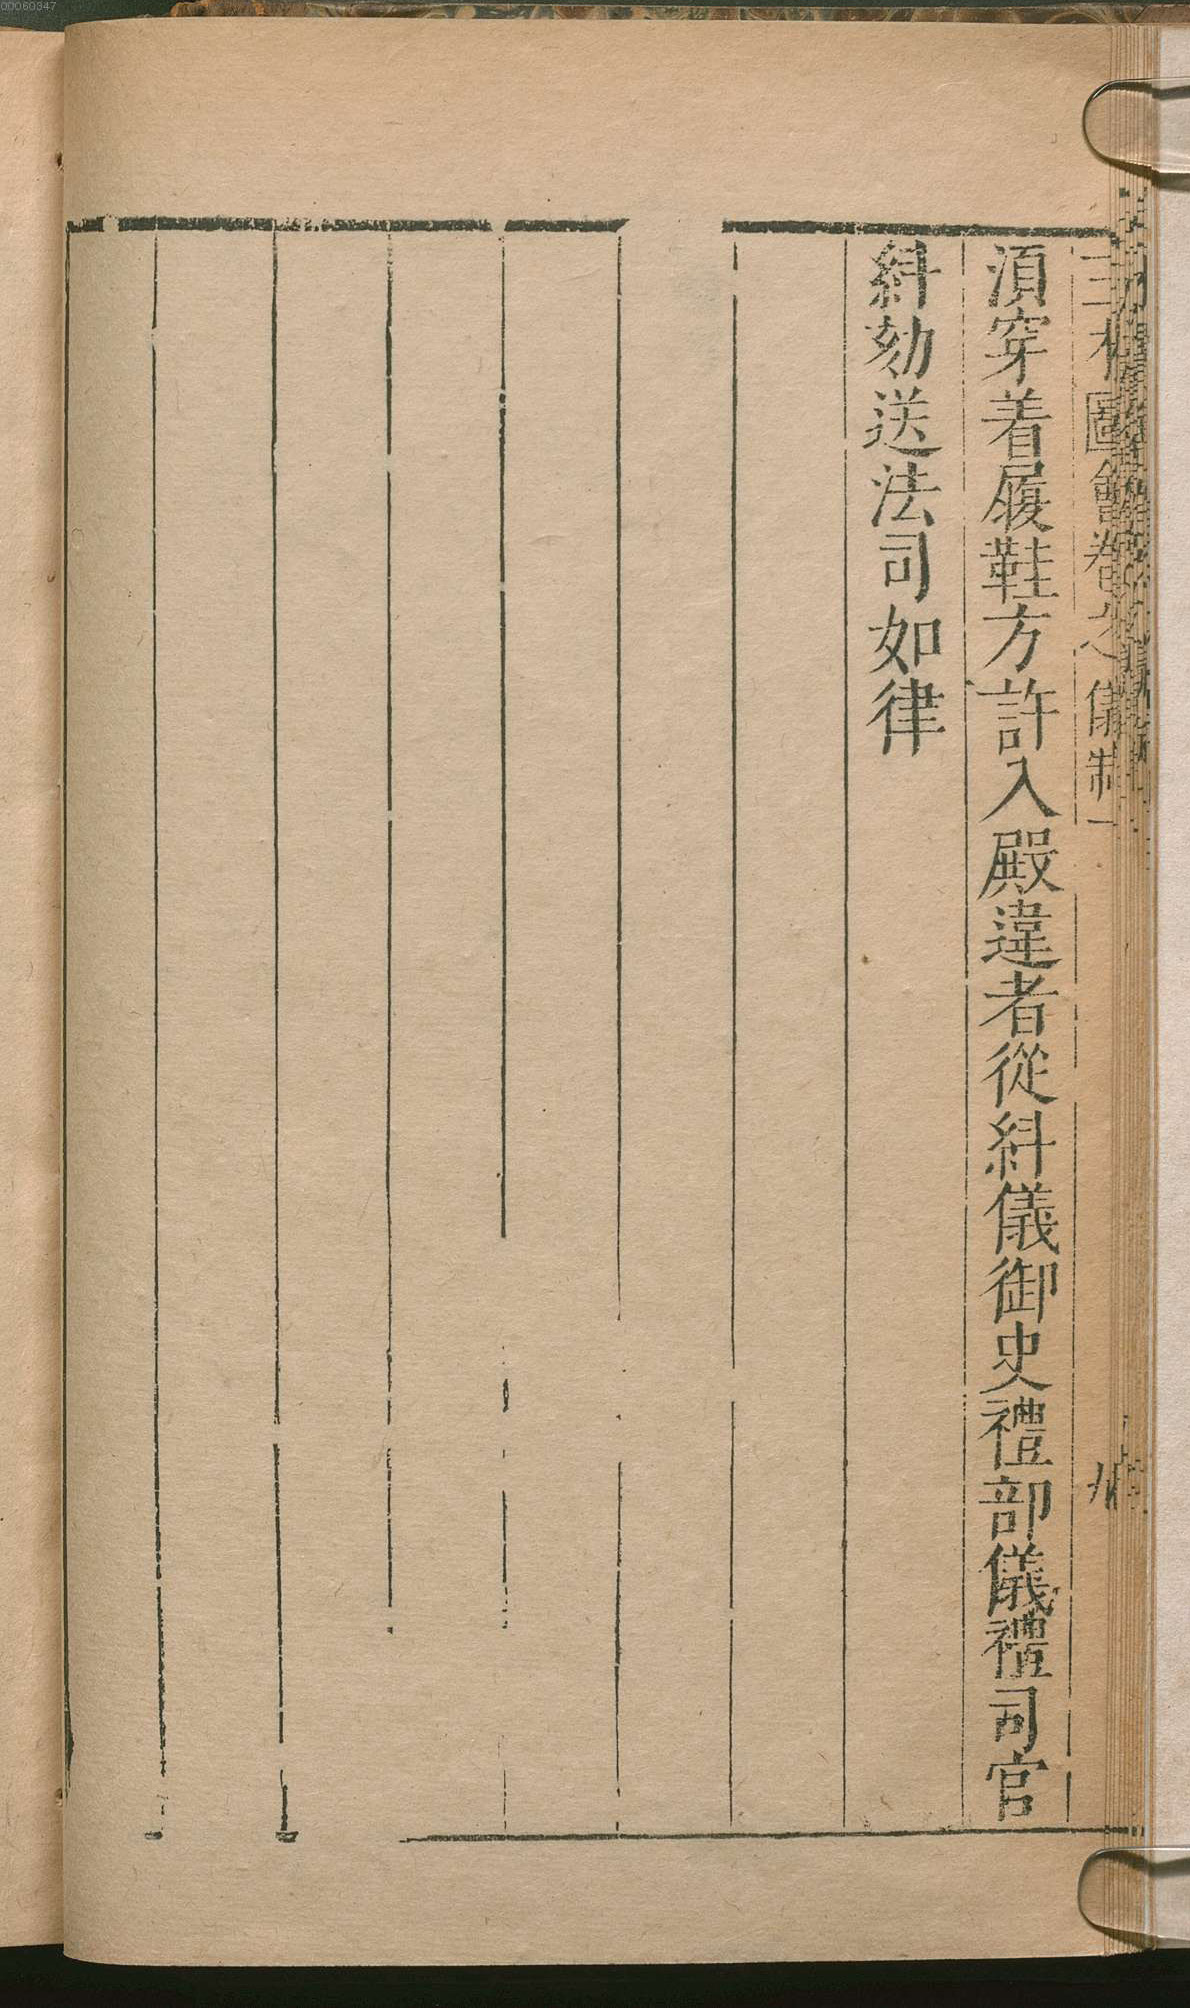 三才圖會卷之儀制一
九
湏穿着履鞋方許入殿違者從糾儀御史禮部儀禮司官
糾劾送法司如律
00060347